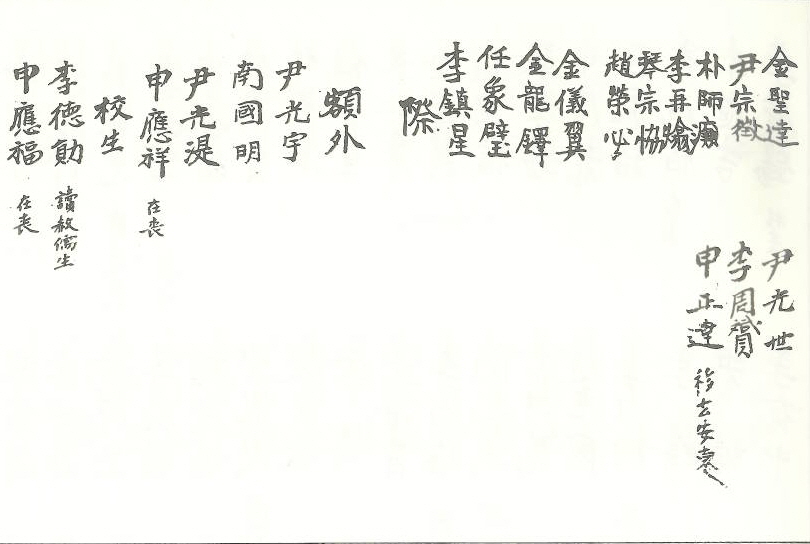 金聖達
尹宗徵
朴師灝
李再爚
琴宗協
趙榮必
金儀翼
金龍鐸
任象璧
李鎮星
尹光世
李周贇
申正達 移去安東
際
額外
尹光宇
南國明
尹光湜
申應祥 在喪
校生
李德勛 讀赦儒生
申應福 在喪